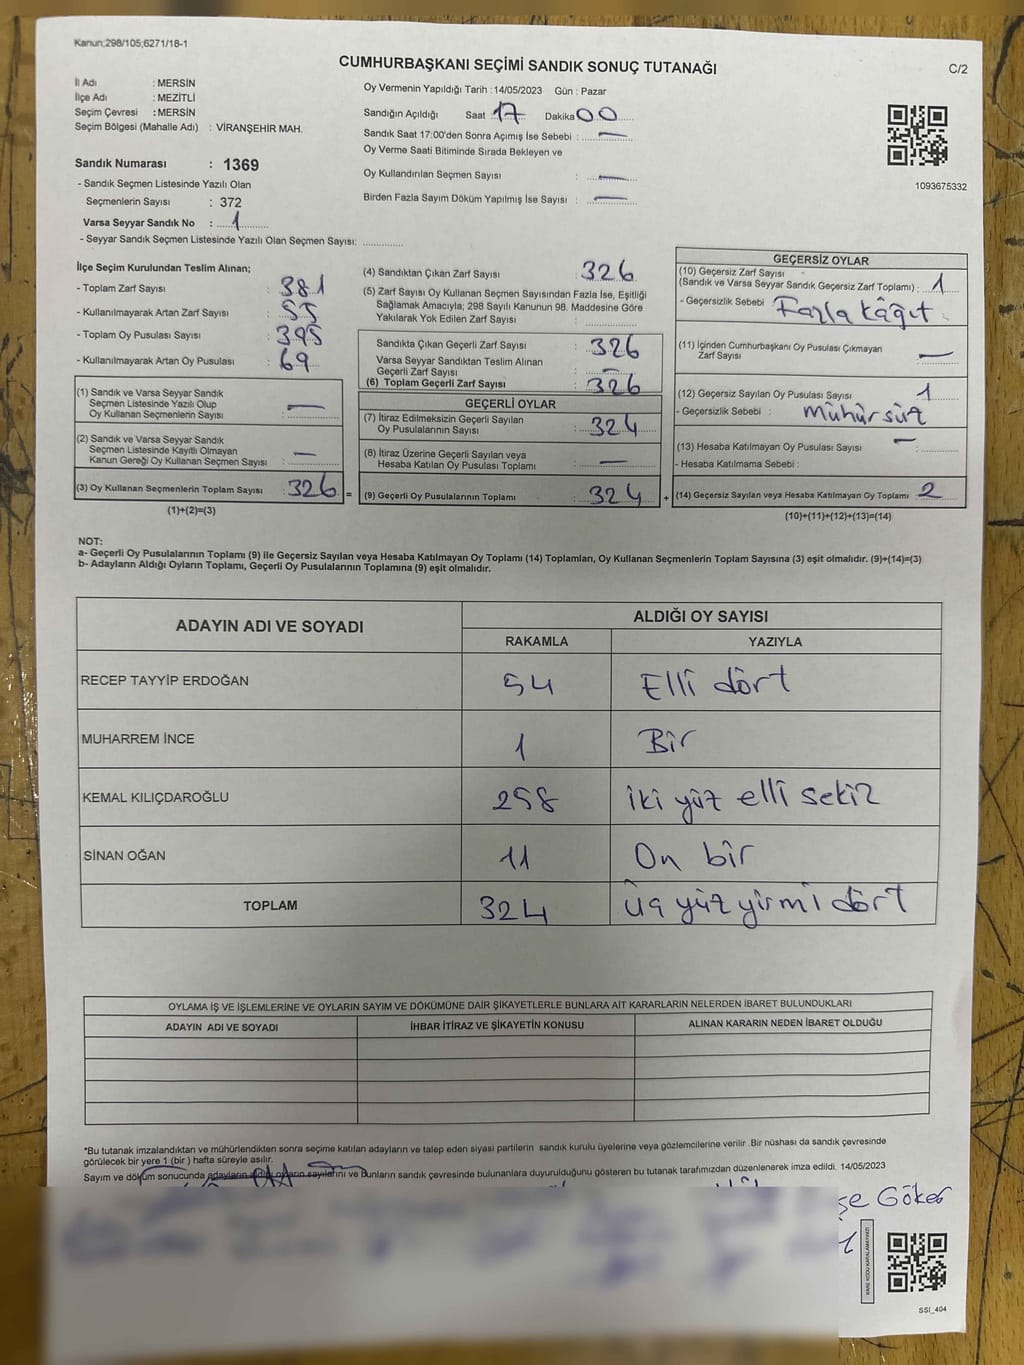 Kanun;298/105;6271/18-1
CUMHURBAŞKANI SEÇİMİ SANDIK SONUÇ TUTANAĞI
C/2
İl Adı : MERSİN
İlçe Adı : MEZİTLİ
Seçim Çevresi : MERSİN
Seçim Bölgesi (Mahalle Adı) : VİRANŞEHİR MAH.
Sandık Numarası : 1369
- Sandık Seçmen Listesinde Yazılı Olan
Seçmenlerin Sayısı : 372
Varsa Seyyar Sandık No : 1
- Seyyar Sandık Seçmen Listesinde Yazılı Olan Seçmen Sayısı:
Oy Vermenin Yapıldığı Tarih : 14/05/2023 Gün : Pazar
Sandığın Açıldığı Saat 17 Dakika 00
Sandık Saat 17:00'den Sonra Açımış İse Sebebi : —
Oy Verme Saati Bitiminde Sırada Bekleyen ve
Oy Kullandırılan Seçmen Sayısı : —
Birden Fazla Sayım Döküm Yapılmış İse Sayısı : —
1093675332
İlçe Seçim Kurulundan Teslim Alınan;
- Toplam Zarf Sayısı : 381
- Kullanılmayarak Artan Zarf Sayısı : 55
- Toplam Oy Pusulası Sayısı : 395
- Kullanılmayarak Artan Oy Pusulası : 69
(1) Sandık ve Varsa Seyyar Sandık
Seçmen Listesinde Yazılı Olup
Oy Kullanan Seçmenlerin Sayısı : —
(2) Sandık ve Varsa Seyyar Sandık
Seçmen Listesinde Kayıtlı Olmayan
Kanun Gereği Oy Kullanan Seçmen Sayısı : —
(3) Oy Kullanan Seçmenlerin Toplam Sayısı : 326 =
(1)+(2)=(3)
(4) Sandıktan Çıkan Zarf Sayısı : 326
(5) Zarf Sayısı Oy Kullanan Seçmen Sayısından Fazla İse, Eşitliği
Sağlamak Amacıyla; 298 Sayılı Kanunun 98. Maddesine Göre
Yakılarak Yok Edilen Zarf Sayısı :
Sandıkta Çıkan Geçerli Zarf Sayısı : 326
Varsa Seyyar Sandıktan Teslim Alınan
Geçerli Zarf Sayısı : —
(6) Toplam Geçerli Zarf Sayısı : 326
GEÇERLİ OYLAR
(7) İtiraz Edilmeksizin Geçerli Sayılan
Oy Pusulalarının Sayısı : 324
(8) İtiraz Üzerine Geçerli Sayılan veya
Hesaba Katılan Oy Pusulası Toplamı : —
(9) Geçerli Oy Pusulalarının Toplamı : 324 +
GEÇERSİZ OYLAR
(10) Geçersiz Zarf Sayısı
(Sandık ve Varsa Seyyar Sandık Geçersiz Zarf Toplamı) : 1
- Geçersizlik Sebebi : Fazla kâğıt
(11) İçinden Cumhurbaşkanı Oy Pusulası Çıkmayan
Zarf Sayısı : —
(12) Geçersiz Sayılan Oy Pusulası Sayısı : 1
- Geçersizlik Sebebi : Mühürsüz
(13) Hesaba Katılmayan Oy Pusulası Sayısı : —
- Hesaba Katılmama Sebebi :
(14) Geçersiz Sayılan veya Hesaba Katılmayan Oy Toplamı : 2
(10)+(11)+(12)+(13)=(14)
NOT:
a- Geçerli Oy Pusulalarının Toplamı (9) ile Geçersiz Sayılan veya Hesaba Katılmayan Oy Toplamı (14) Toplamları, Oy Kullanan Seçmenlerin Toplam Sayısına (3) eşit olmalıdır. (9)+(14)=(3)
b- Adayların Aldığı Oyların Toplamı, Geçerli Oy Pusulalarının Toplamına (9) eşit olmalıdır.
ADAYIN ADI VE SOYADI ALDIĞI OY SAYISI
RAKAMLA YAZIYLA
RECEP TAYYİP ERDOĞAN 54 Elli dört
MUHARREM İNCE 1 Bir
KEMAL KILIÇDAROĞLU 258 iki yüz elli sekiz
SİNAN OĞAN 11 On bir
TOPLAM 324 Üç yüz yirmi dört
OYLAMA İŞ VE İŞLEMLERİNE VE OYLARIN SAYIM VE DÖKÜMÜNE DAİR ŞİKAYETLERLE BUNLARA AİT KARARLARIN NELERDEN İBARET BULUNDUKLARI
ADAYIN ADI VE SOYADI İHBAR İTİRAZ VE ŞİKAYETİN KONUSU ALINAN KARARIN NEDEN İBARET OLDUĞU
*Bu tutanak imzalandıktan ve mühürlendikten sonra seçime katılan adayların ve talep eden siyasi partilerin sandık kurulu üyelerine veya gözlemcilerine verilir .Bir nüshası da sandık çevresinde
görülecek bir yere 1 (bir ) hafta süreyle asılır.
Sayım ve döküm sonucunda adayların aldığı oyların sayılarını ve Bunların sandık çevresinde bulunanlara duyurulduğunu gösteren bu tutanak tarafımızdan düzenlenerek imza edildi. 14/05/2023
şe Göker
KARE KODU KARALAMAYINIZ!
SSI_404